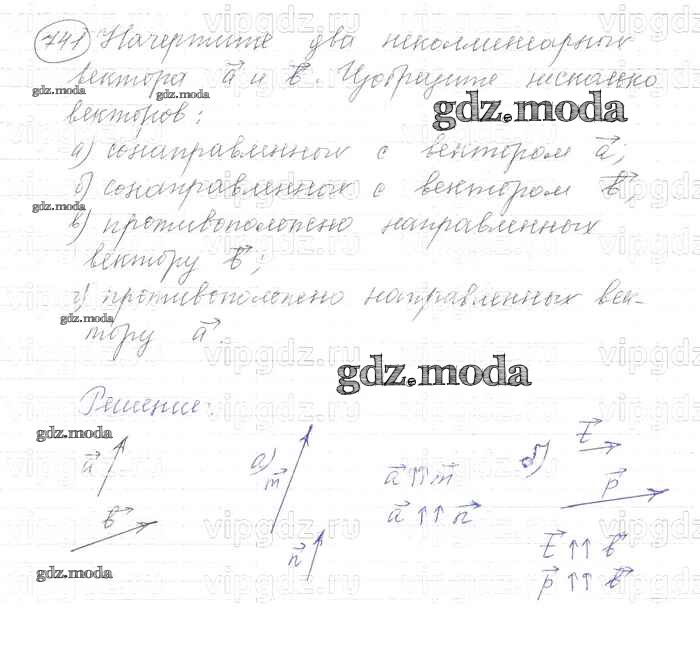 741 Начертите два неколлинеарных
вектора a⃗ и b⃗. Изобразите несколько
векторов:
а) сонаправленных с вектором a⃗;
б) сонаправленных с вектором b⃗;
в) противоположно направленных
вектору b⃗;
г) противоположно направленных век-
тору a⃗.
Решение:
a⃗
b⃗
а)
m⃗
n⃗
a⃗ ↑↑ m⃗
a⃗ ↑↑ n⃗
б)
t⃗
p⃗
t⃗ ↑↑ b⃗
p⃗ ↑↑ b⃗
gdz.moda
gdz.moda
gdz.moda
gdz.moda
gdz.moda
gdz.moda
gdz.moda
gdz.moda
vipgdz.ru